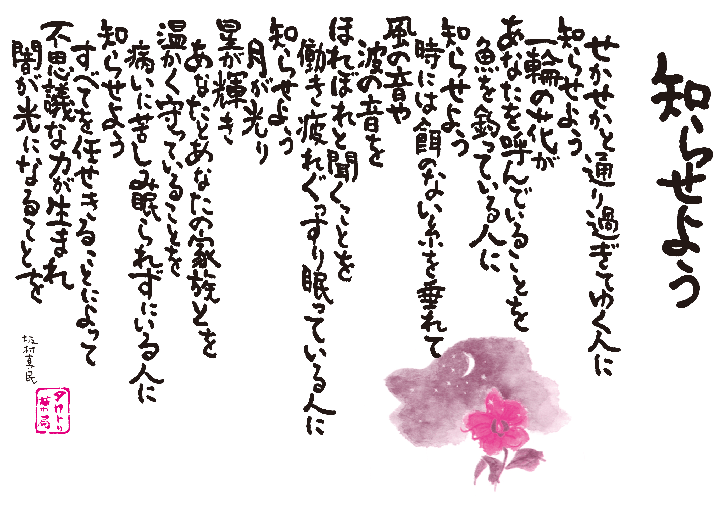 知らせよう
せかせかと通り過ぎてゆく人に
知らせよう
一輪の花が
あなたを呼んでいることを
魚を釣っている人に
知らせよう
時には餌のない糸を垂れて
風の音や
波の音を
ほれぼれと聞くことを
働き疲れぐっすり眠っている人に
知らせよう
月が光り
星が輝き
あなたとあなたの家族とを
温かく守っていることを
病いに苦しみ眠られずにいる人に
知らせよう
すべてを任せきることによって
不思議な力が生まれ
闇が光になることを
坂村真民
タカトリ
薬局